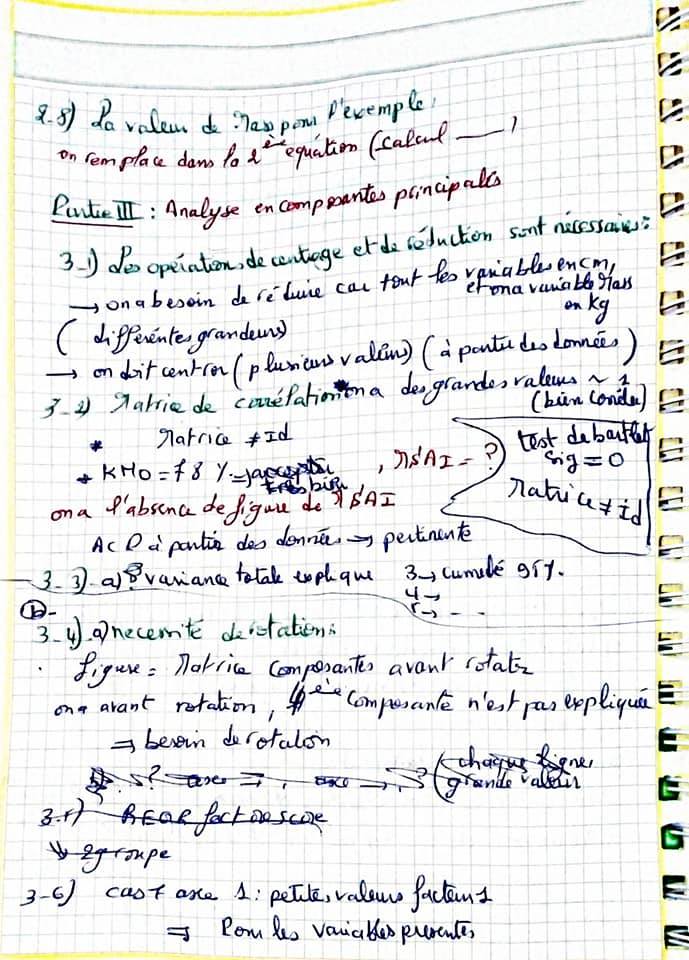 2.8) La valeur de Mass pour l'exemple:
on remplace dans la 2ème equation (calcul ___ )
Partie III : Analyse en composantes principales
3-1) Les opérations de centrage et de réduction sont nécessaires:
→ on a besoin de réduire car tout les variables en cm,
et on a variable Mass
en kg
( différentes grandeurs)
→ on doit centrer (plusieurs valeurs) (à partir des données)
3-2) Matrice de corrélation on a des grandes valeurs ~ 1
(bien
* Matrice ≠ Id
* KMO = 78 % → acceptée
très bien
, MSAI = ?
test de bartlet
sig = 0
Matrice ≠ id
on a l'absence de figure de MSAI
ACP à partir des données → pertinente
3-3)-a) variance totale explique 3→ cumulé 95%.
4→
5→ - - -
b-
3-4) a) necemité de rotation:
. figure = Matrice composantes avant rotat
on a avant rotation, composante n'est pas expliquée
⇒ besoin de rotation
? axes ⇒, axe →, (chaque ligne,
grande valeur
3.5) REGR factor score
↳ 2 groupe
3-6) cas 7 axe 1: petite, valeurs facteur 1
⇒ Pour les variables presentes,